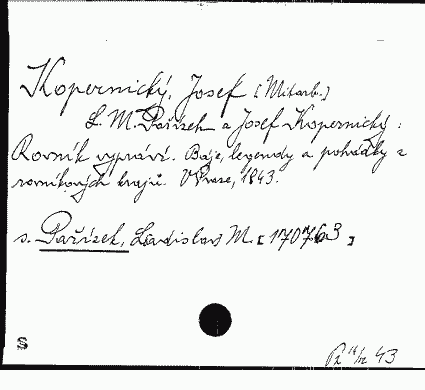 Kopernický, Josef [Mitarb.]
L. M. Pařízek a Josef Kopernický :
Rovník vypráví. Báje, legendy a pohádky z
rovníkových krajů. V Praze, 1943.
s. Pařízek, Ladislav M. [170763]
S
43